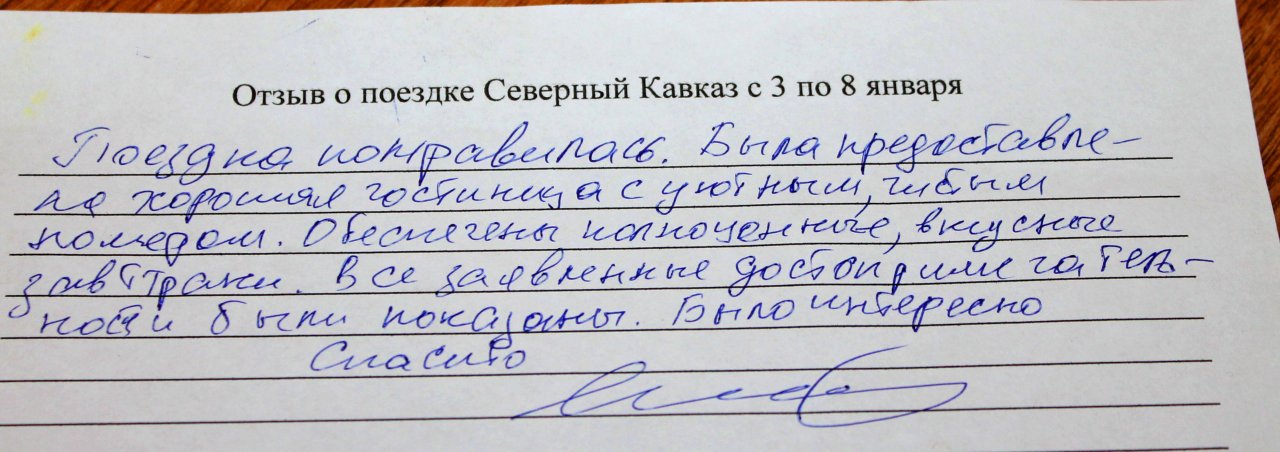 Отзыв о поездке Северный Кавказ с 3 по 8 января
Поездка понравилась. Была предоставле-
на хорошая гостиница с уютным, чистым
номером. Обеспечены полноценные, вкусные
завтраки. Все заявленные достопримечатель-
ности были показаны. Было интересно
Спасибо